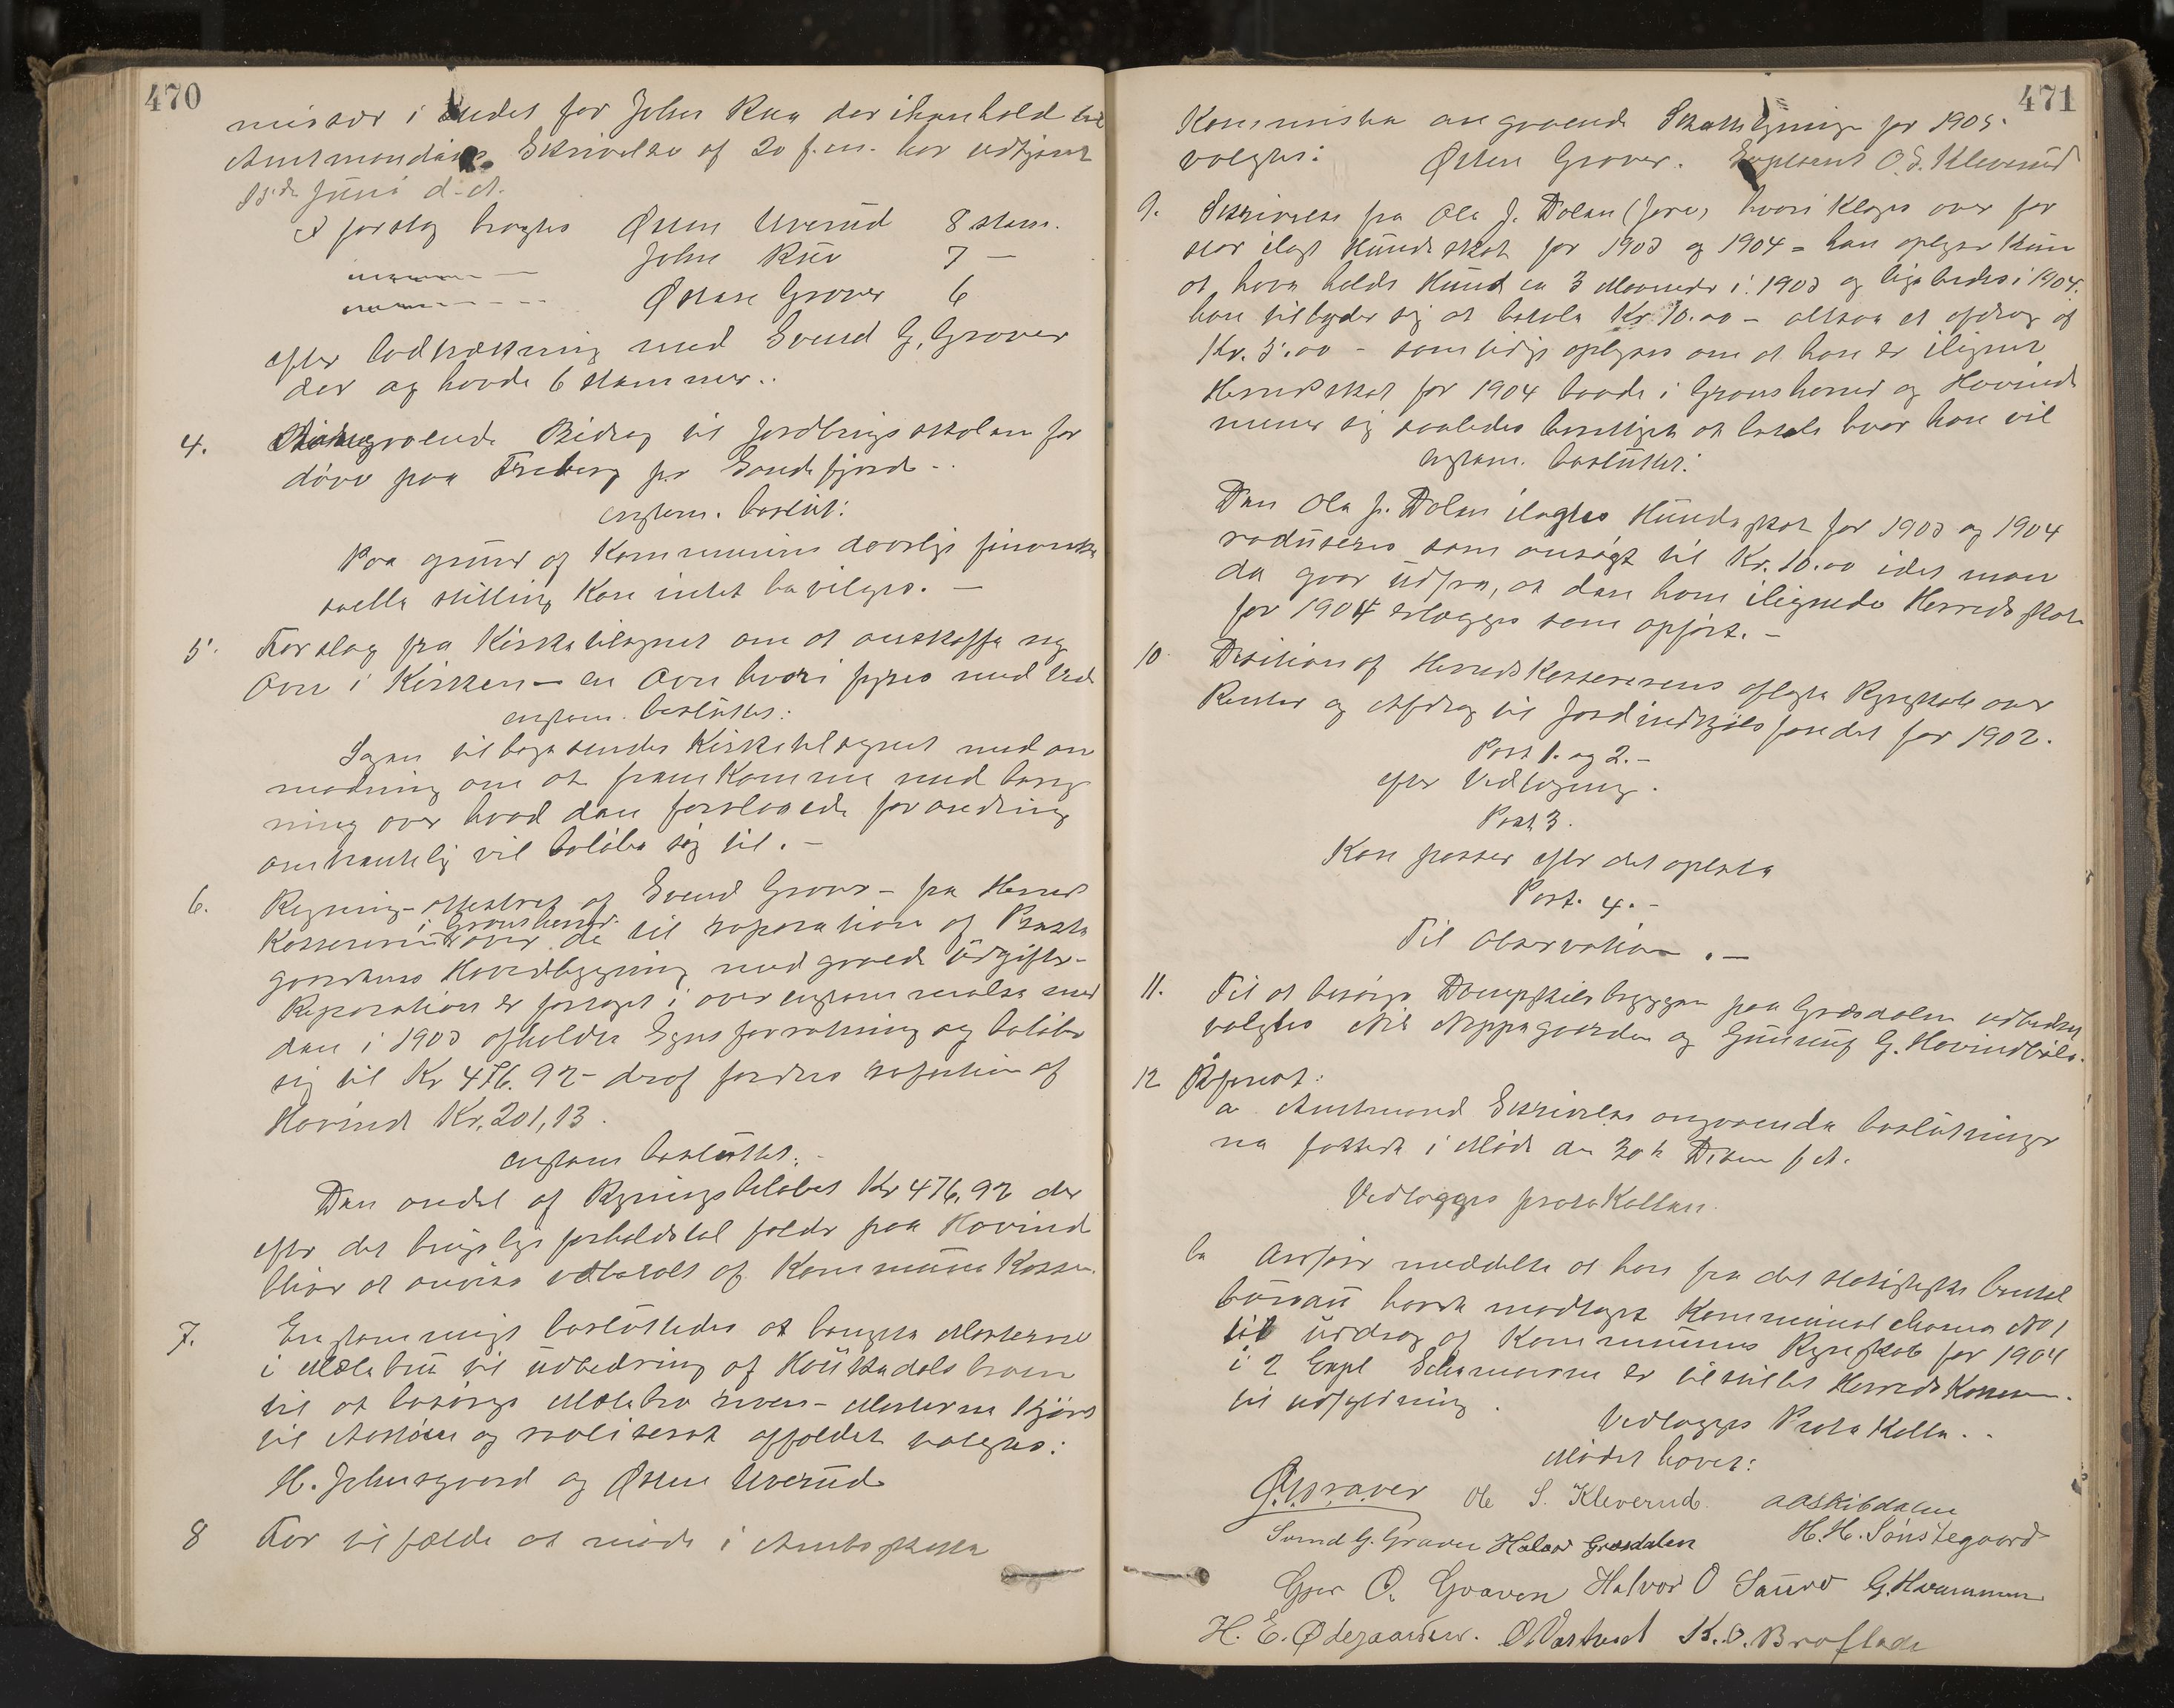 470
missær i Stedet for John Rua der i henhold til
Amtmandens Skrivelse af 20 f.m. har udtjent
15de Juni d.A.
I forslag bragtes Østen Uverud 8 stem.
John Rue 7 —
Østen Graver 6
efter lodtrækning med Svend G. Graver
der og havde 6 stemmer..
4. Andragende Bidrag til fordlingsskolen for
døve paa Freberg pr Sandefjord..
enstem. beslut:
Paa grund af Kommunens daarlige finanti
elle stilling kan intet bevilges. —
5. Forslag fra Kirketilsynet om at anskaffe ny
Ovn i Kirken — en Ovn hvori fyres med Ved
enstem. besluttes:
Sagen tilbagesendes Kirketilsynet med an
modning om at fremkomme med bereg
ning over hvad den foreslaaede forandring
omtrentelig vil beløbe sig til. —
6. Regning - attesteret af Svend Graver - fra Herreds
i Gransherred
Kassereren over de til reparation af Præste
gaardens Hovedbygning medgaaede Udgifter -
Reparationen er foretaget i overensstemmelse med
den i 1903 afholdte Synsforretning og beløber
sig til Kr 476.92 - deraf fordres refusion af
Hovind Kr. 201,13.
enstem besluttet:
Den andel af Regningsbeløbet Kr 476.92 der
efter det brugelige forholdstal falder paa Hovind
bliver at anvise udbetalt af Kommunekassen.
7. Enstemmigt besluttedes at benytte Materialerne
i Mælebru til udbedring af
til at besørge Mælebro reven - Materialerne kjørt
til og realiseret affaldet valgtes:
H. Johnsgaard og Østen Uverud
8 For tilfælde at møde i Amtsskatte
471
Kommisionen angaaende Skatteligning for 1905.
valgtes: Østen Graver. Suppleant O. S. Kleverud
9. Skrivelse fra Ole J. Dolen (Jore) hvori klages over for
stor ilagt Hundeskat for 1903 og 1904 = han oplyser kun
at have holdt Hund ca 3 Maaneder i 1903 og ligeledes i 1904.
han tilbyder sig at betale Kr 10.00 - altsaa et afdrag af
Kr. 5.00 - samtidig oplyses om at han er ilignet
Herredskat for 1904 baade i Gransherred og Hovind
mener sig saaledes berettiget at betale hvor han vil
enstem. besluttet:
Den Ole J. Dolen ilagte Hundeskat for 1903 og 1904
reduseres som ansøgt til Kr. 10.00 idet man
da gaar ud fra, at den ham ilignede Herredsskat
for 1904 erlægges som opført. —
10. Desition af Herredskassererens aflagte Regnskab over
Renter og Afdrag til Jordindkjøbsfondet for 1902.
Post 1. og 2. —
efter Vedtegning.
Post 3.
Kan passer efter det oplyste
Post. 4. -
Til Observation. —
11. Til at besørge Dampskibsbryggen paa Græsdalen udbedret
valgtes Nils Nyppegaarden og Gunnuf G. Hovindbøle.
12 Referat:
a Amtmand Skrivelse angaaende beslutninge
ne fattede i Møde den 30te Desem f A.
Vedlægges protokollen.
b Ordfører meddelte at han fra det statistiske Central
büreau havde modtaget Kommunal schema No 1
til Uddrag af Kommunens Regnskab for 1904
i 2 Expl. Schemaerne er tilstillet Herredskasseren.
til udfyldning.
Vedlægges Protokollen..
Mødet hævet:
Ø. Graver Ole S. Kleverud. AASkibdalen
Svend G. Graver Halvor Græsdalen H. H. Sønstegaard
Gjer O. Graven Halvor O Saurd G. Hvammen
H. E. Ødegaarden. O Vartveit K. O. Broflade